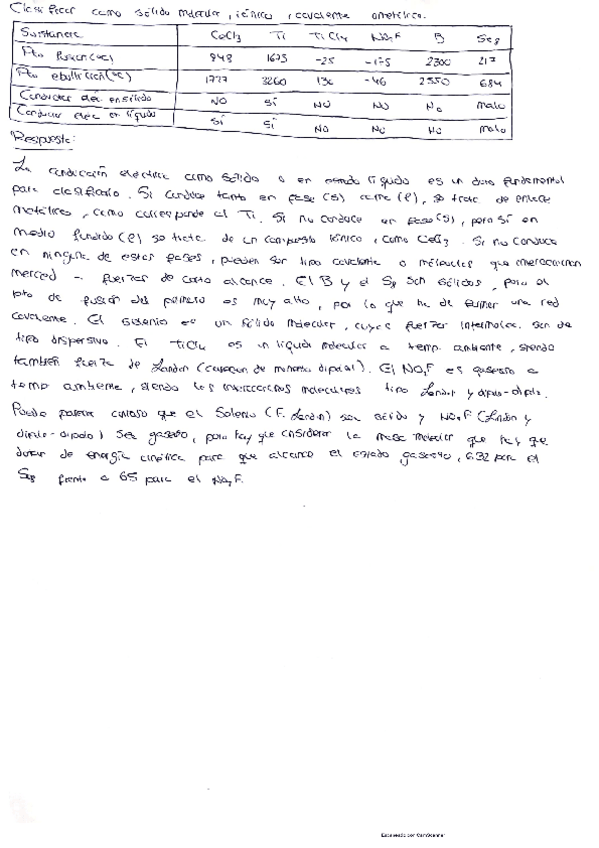 Clasificar como sólido molecular, iónico, covalente o metálico.
Sustancia CeCl3 Ti TiCl4 NO2F B Se8
Pto fusión (ºC) 848 1675 -25 -175 2300 217
Pto ebullición (ºC) 1727 3260 136 -46 2550 684
Conductor eléc. en sólido NO SÍ NO NO No malo
Conductor eléc. en líquido SÍ SÍ NO NO NO malo
Respuesta:
La conducción eléctrica como sólido o en estado líquido es un dato fundamental
para clasificarlo. Si conduce tanto en fase (s) como (l), se trata de enlace
metálico, como corresponde al Ti. Si no conduce en fase (s), pero sí en
medio fundido (l) se trata de un compuesto iónico, como CeCl3. Si no conduce
en ninguna de estas fases, pueden ser tipo covalente o moléculas que interaccionan
merced a fuerzas de corto alcance. El B y el Se8 son sólidos, pero el
pto de fusión del primero es muy alto, por lo que ha de formar una red
covalente. El selenio es un sólido molecular, cuyas fuerzas intermolec. son de
tipo dispersivo. El TiCl4 es un líquido molecular a temp. ambiente, siendo
también fuerza de London (momento dipolar). El NO2F es gaseoso a
temp ambiente, siendo las interacciones moleculares tipo London y dipolo-dipolo.
Puede parecer curioso que el Selenio (F. London) sea sólido y NO2F (London y
dipolo-dipolo) sea gaseoso, pero hay que considerar la masa molecular que hay que
dotar de energía cinética para que alcance el estado gaseoso, 632 para el
Se8 frente a 65 para el NO2F.
Escaneado con CamScanner